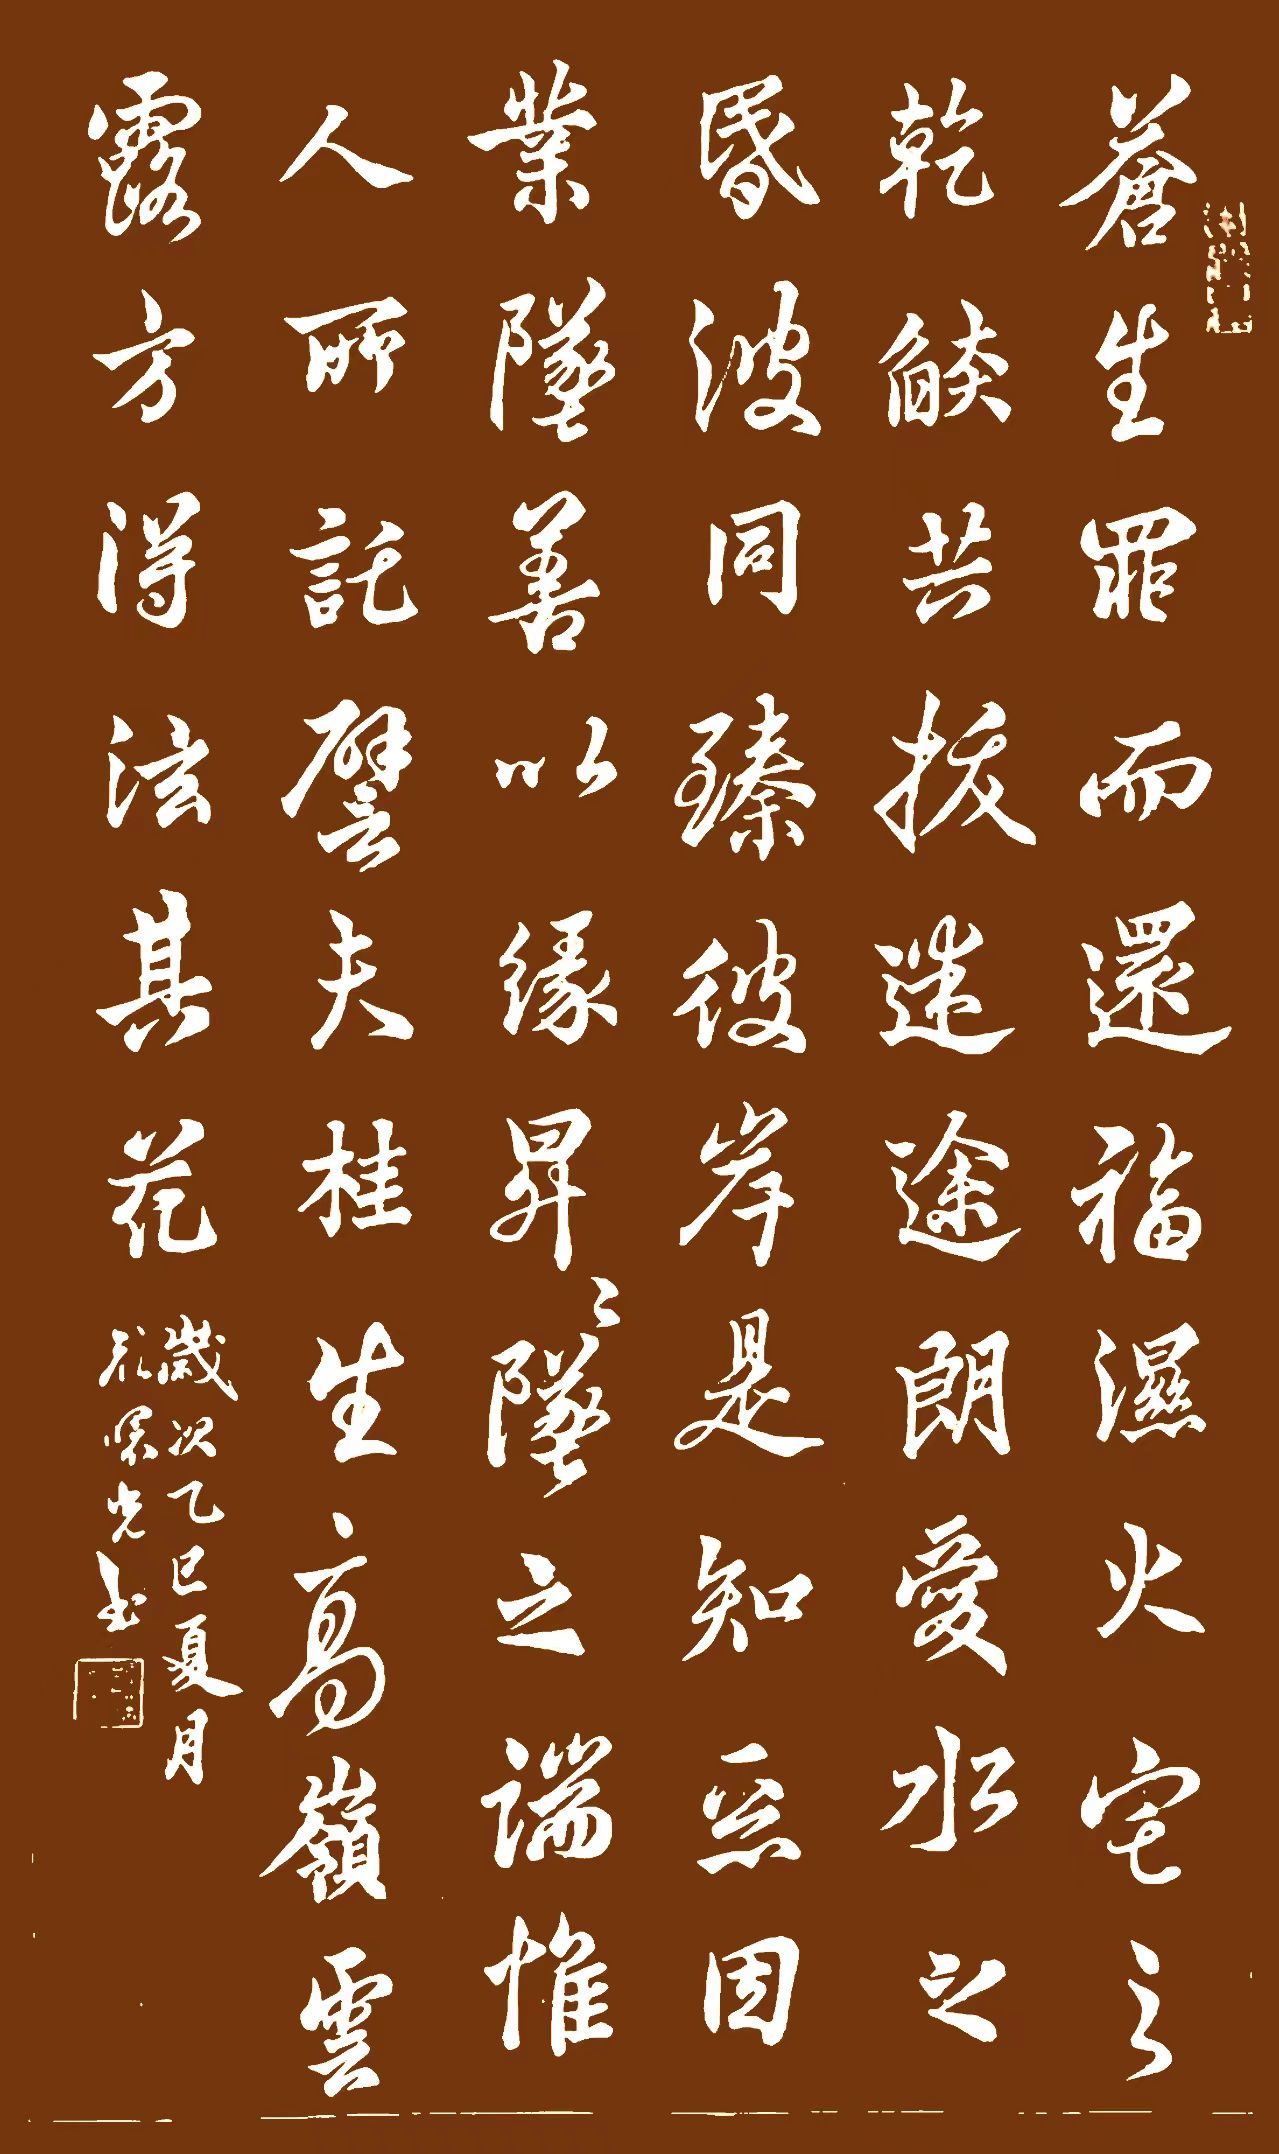 蒼生罪而還福濕火宅之
乾燄共拔迷途朗愛水之
昏波同臻彼岸是知惡因
業墜善以緣昇昇墜之端惟
人所託譬夫桂生高嶺雲
露方得泫其花
歲次乙巳夏月
光书